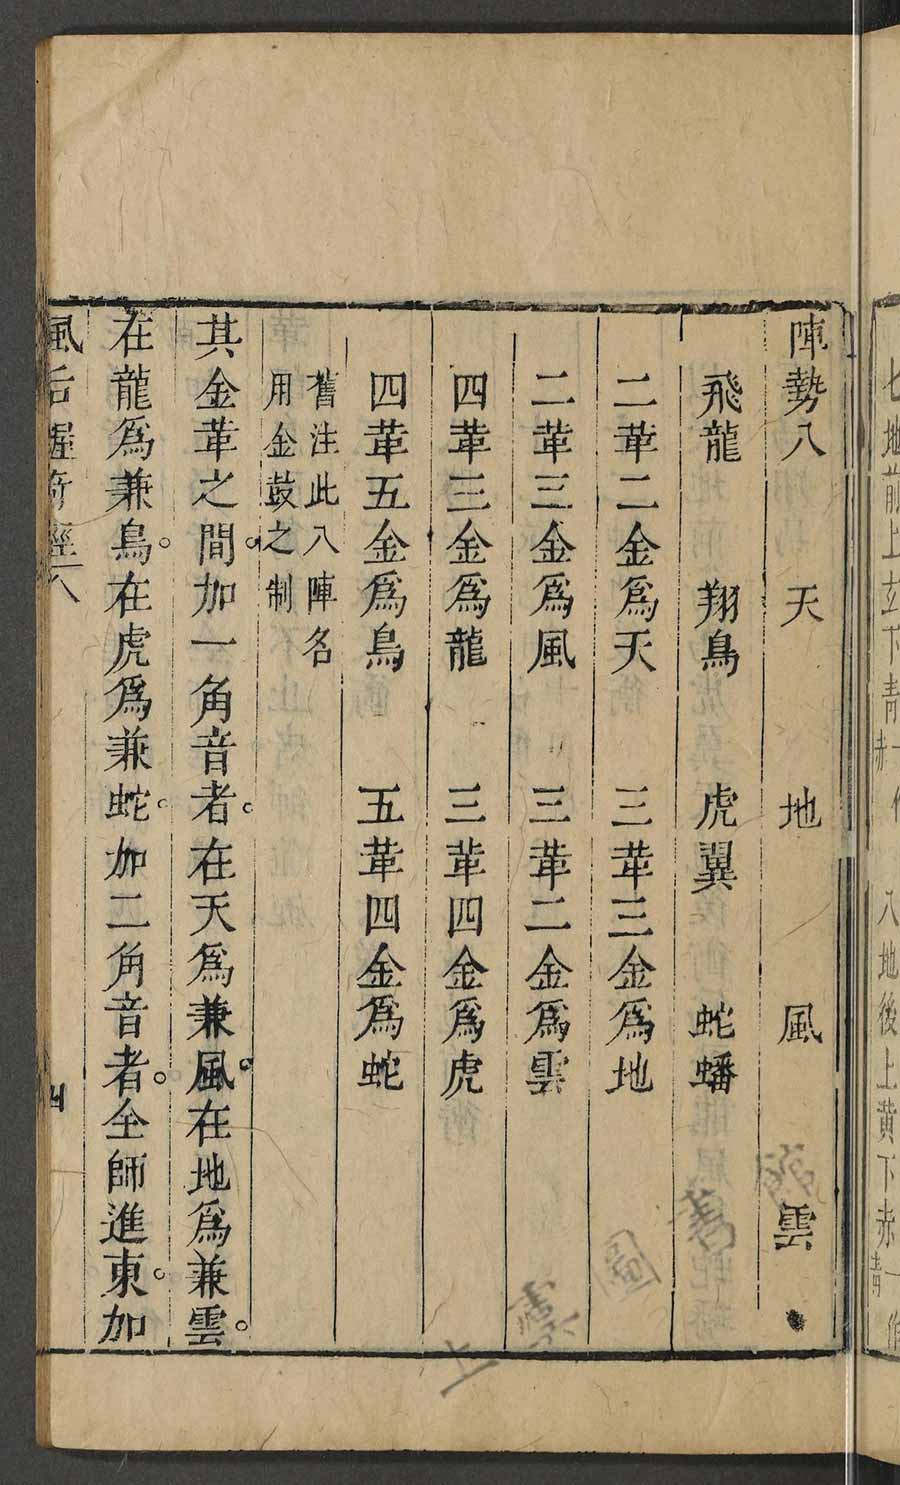 陣勢八 天 地 風 雲
飛龍 翔鳥 虎翼 蛇蟠
二革二金爲天 三革三金爲地
二革三金爲風 三革二金爲雲
四革三金爲龍 三革四金爲虎
四革五金爲鳥 五革四金爲蛇
舊注此八陣名
用金鼓之制
其金革之間。加一角音者。在天爲兼風。在地爲兼雲。
在龍爲兼鳥。在虎爲兼蛇。加二角音者。全師進東。加
風后握奇經 八 四
七地前上玄下青 八地後上黄下赤